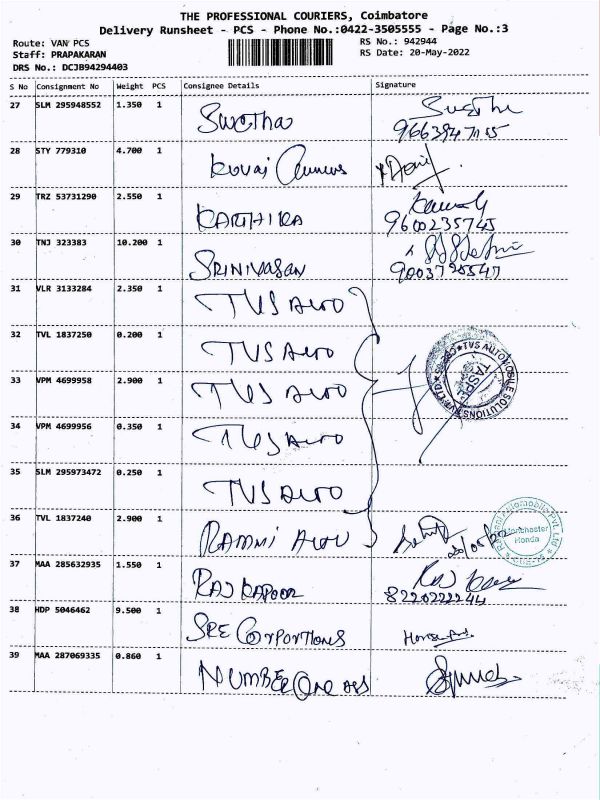 THE PROFESSIONAL COURIERS, Coimbatore
Delivery Runsheet - PCS - Phone No.:0422-3505555 - Page No.:3
Route: VAN PCS
Staff: PRAPAKARAN
DRS No.: DCJB94294403
RS No.: 942944
RS Date: 20-May-2022
S No Consignment No Weight PCS Consignee Details Signature
27 SLM 295948552 1.350 1 Swetha
28 STY 779310 4.700 1 Kovai
29 TRZ 53731290 2.550 1 KARTHIKA 9600235745
30 TNJ 323383 10.200 1 SRINIVASAN
31 VLR 3133284 2.350 1 TVS Auto
32 TVL 1837250 0.200 1 TVS Auto
33 VPM 4699958 2.900 1 TVS Auto
34 VPM 4699956 0.350 1 TVS Auto
35 SLM 295973472 0.250 1 TVS Auto
TVS AUTOMOBILE SOLUTIONS PVT LTD
36 TVL 1837240 2.900 1 20/05/22
Manchester
Honda
37 MAA 285632935 1.550 1 RAJ KAPOOR
8220222244
38 HDP 5046462 9.500 1 SRE
39 MAA 287069335 0.860 1 NUMBER One